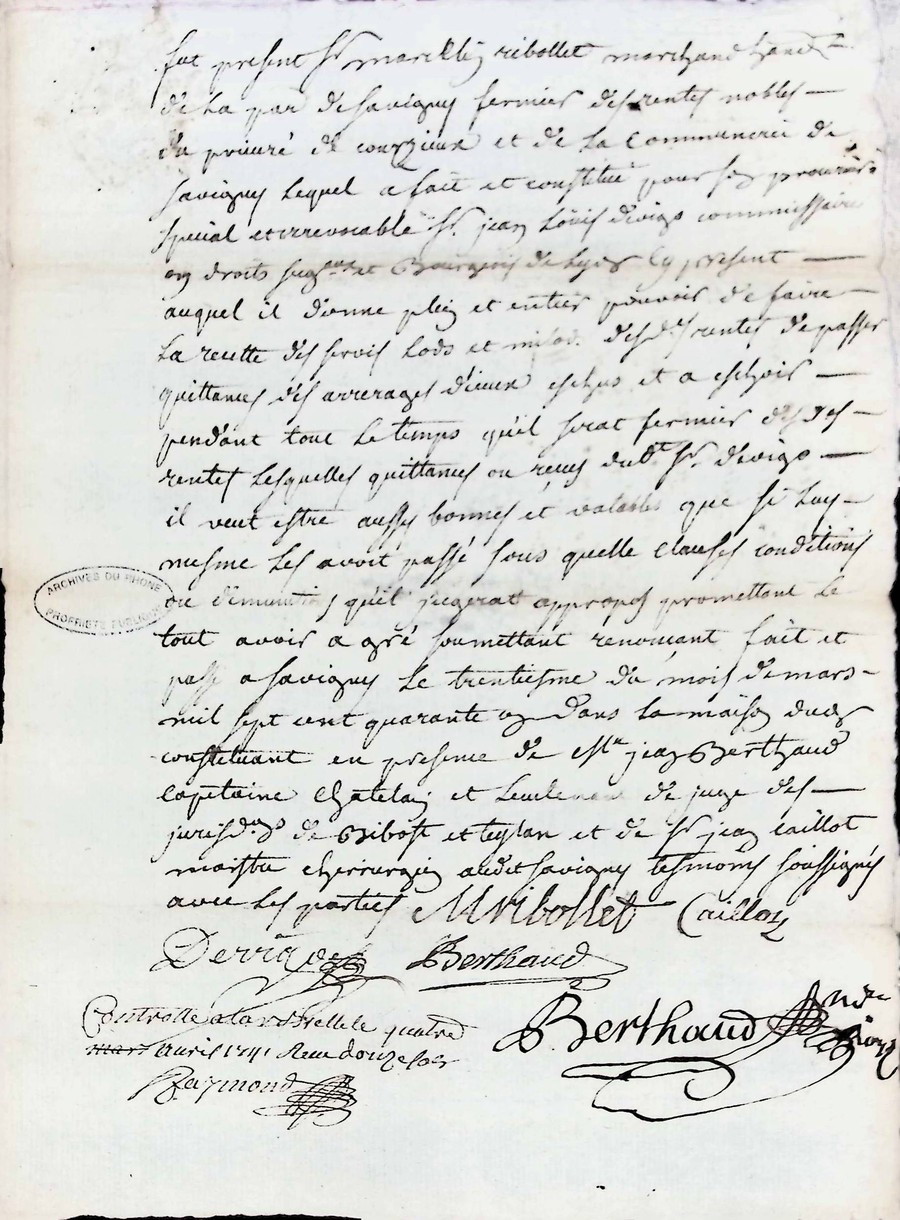 fut present Sr. marcellin ribollet marchand
de la par de savigny fermier des rentes nobles
du prieuré de courzieux et de la communerie de
savigny lequel a fait et constitué pour son
special et irrevocable Sr. jean Loüis commissaire
en droits et Bourgeois de Lyon Cy present
auquel il donne plein et entier pouvoir de faire
La recette des servis Lods et milods desd. rentes de passer
quittances des arrerages d'iceux eschus et a eschoir
pendant tout Le temps qu'il serat fermier desdes
rentes Lesquelles quittances ou reçus dudt. Sr.
il veut estre aussy bonnes et valables que sy Luy
mesme Les avoit passé sous quelle clauses conditions
ou qu'il jugerat appropos promettant Le
tout avoir a gré soumettant renonçant fait et
passé a savigny Le trentiesme du mois de mars
mil sept cent quarante un dans La maison dud
constituant en presence de Me jean Berthaud
Capitaine Chatelain et Lieutenant de juge des
de Bibost et et de Sr. jean Caillot
maistre cherurgien audit savigny tesmoins soussignés
avec Les parties MRibollet Caillot
Berthaud
Controllé a la Bresle le quatre
mars avril 1741 Reçu douze sols
Raymond
Berthaud
ARCHIVES DU RHONE
PROPRIETE PUBLIQUE